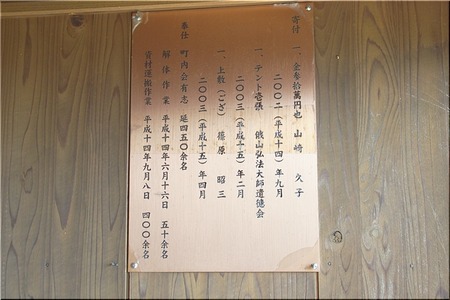 寄付 一、金参拾萬円也 山﨑 久子
二〇〇二（平成十四）年九月
一、テント壱張 俄山弘法大師遺徳会
二〇〇三（平成十五）年二月
一、上敷（ござ） 篠原 昭三
二〇〇三（平成十五）年四月
奉仕 町内会有志 延四五〇余名
解体作業 平成十四年六月十六日 五十余名
資材運搬作業 平成十四年九月八日 四〇〇余名